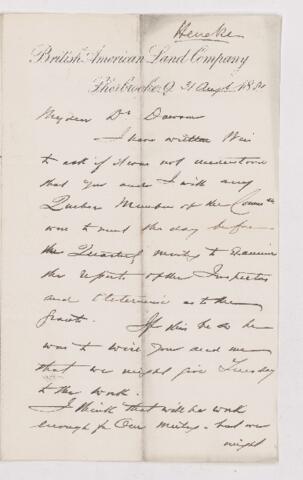 Heneker
British American Land Company
Sherbrooke, Q. 31 Augt 188
My dear Dr Dawson
I have written
to ask if it was not understood
that you and I with any
Quebec Member of the
was to meet the day before
the Quarterly meeting to examine
the reports of the Inspectors
and determine as to the
Grants. If this be so he
was to wire you and me
that we might give Tuesday
to the work.
I think that will be work
enough for our meeting - but we
might